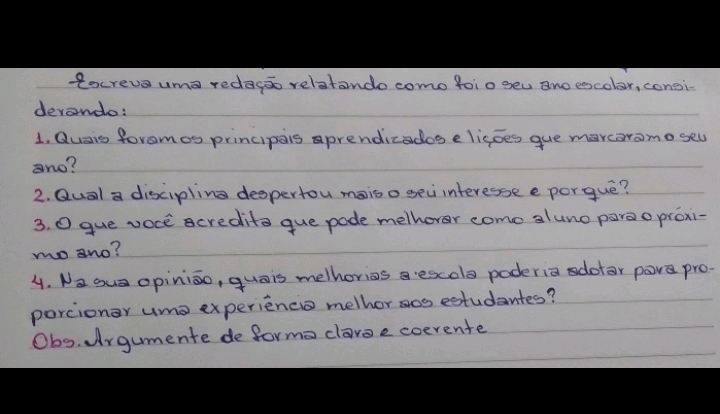 Escreva uma redação relatando como foi o seu ano escolar, consi-
derando:
1. Quais foram os principais aprendizados e lições que marcaram o seu
ano?
2. Qual a disciplina despertou mais o seu interesse e por quê?
3. O que você acredita que pode melhorar como aluno para o próxi-
mo ano?
4. Na sua opinião, quais melhorias a escola poderia adotar para pro-
porcionar uma experiência melhor aos estudantes?
Obs. Argumente de forma clara e coerente